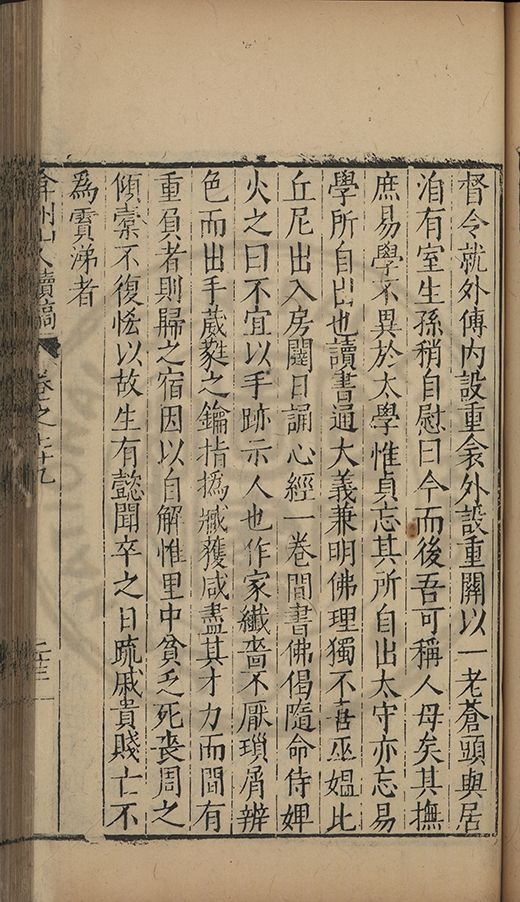 督令就外傅內設重衾外設重關以一老蒼頭與居
洎有室生孫稍自慰曰今而後吾可稱人母矣其撫
庶易學不異於太學惟貞忘其所自出太守亦忘易
學所自出也讀書通大義兼明佛理獨不喜巫媼比
丘尼出入房闥日誦心經一卷間書佛偈隨命侍婢
火之曰不宜以手跡示人也作家纖嗇不厭瑣屑辨
色而出手葳蕤之鑰指撝臧獲咸盡其才力而間有
重負者則歸之宿因以自解惟里中貧乏死喪周之
傾橐不復恡以故生有懿聞卒之日疏戚貴賤亡不
為賈涕者
弇州山人續稿
卷之